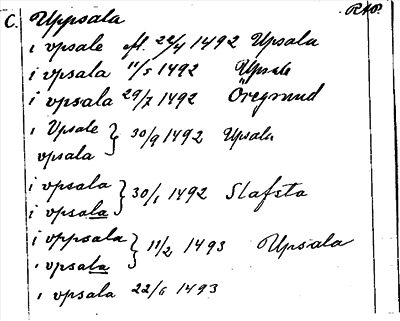 C. Uppsala RAP.
i vpsale fl. 22/4 1492 Upsala
i vpsala 11/5 1492 Upsala
i vpsala 29/7 1492 Öregrund
i Vpsale } 30/9 1492 Upsala
vpsala
i vpsala } 30/1 1492 Slafsta
i vpsala
i vppsala } 11/2 1493 Upsala
i vpsala
i vpsala 22/6 1493